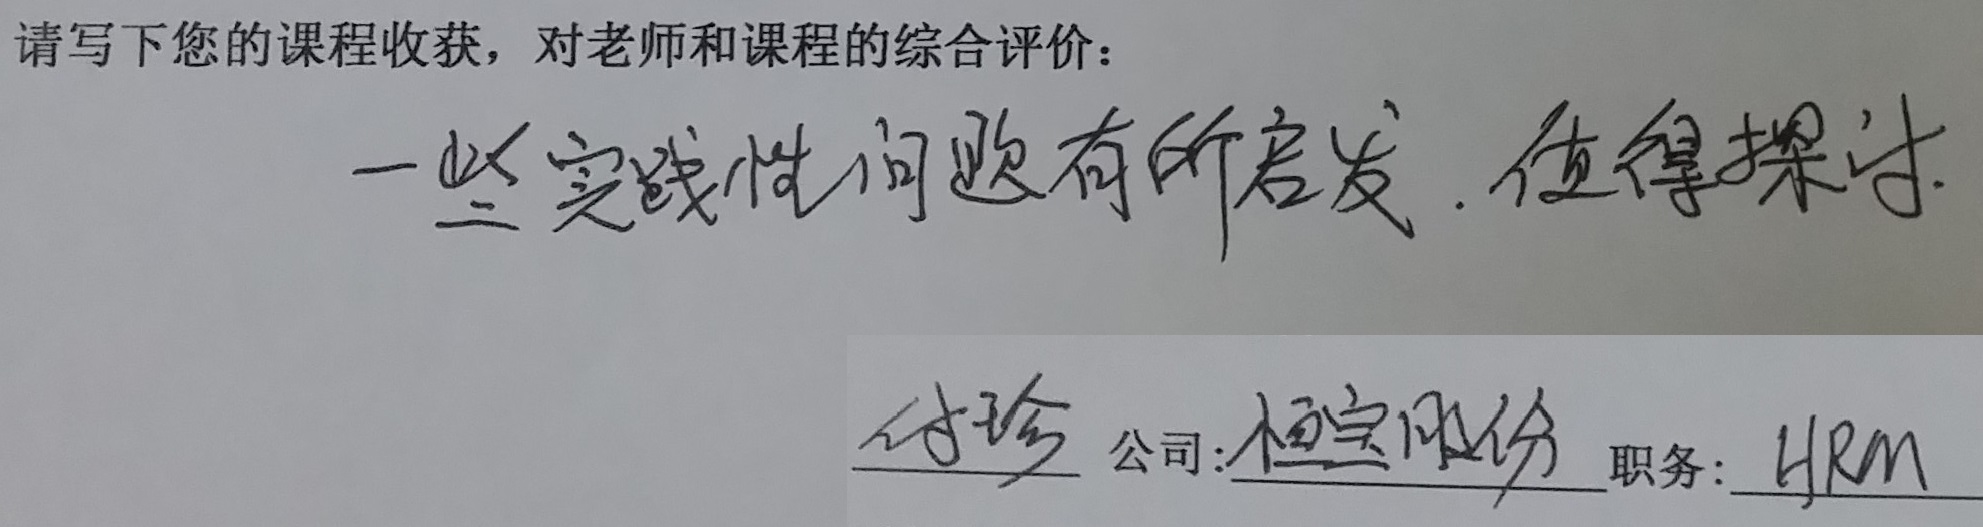 请写下您的课程收获，对老师和课程的综合评价：
一些实践性问题有所启发.值得探讨.
付珍 公司:恒宝股份 职务: HRM